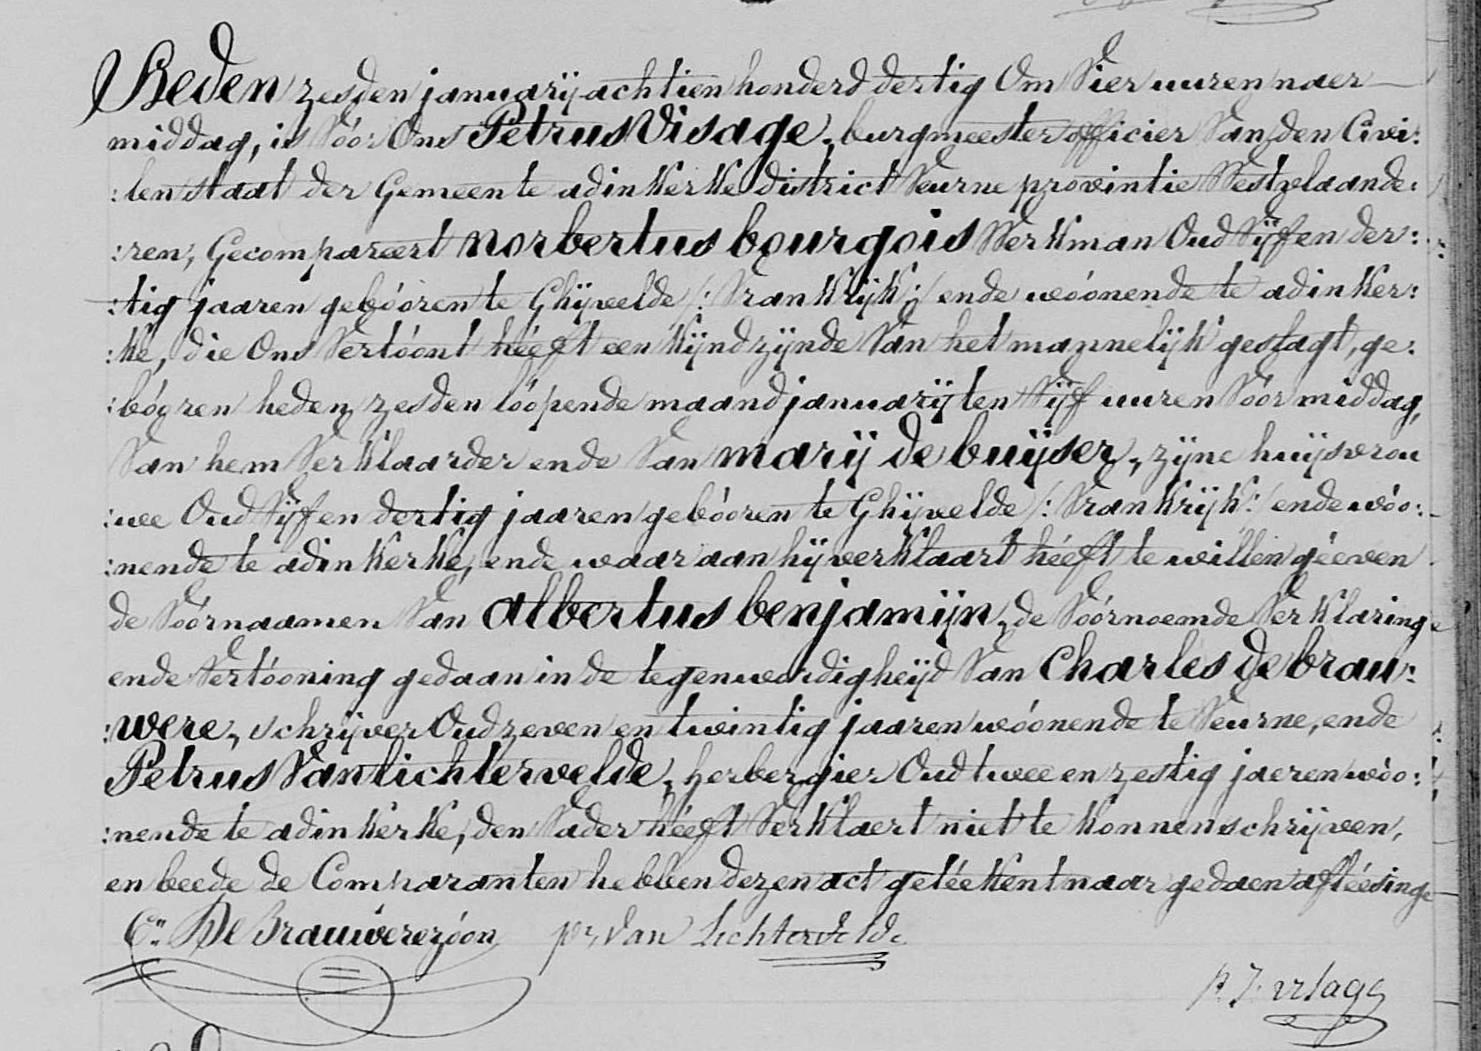 Heden zesden januarij achtien honderd dertig Om Vier uuren naer
middag, is Vóór Ons Petrus Visage, burgmeester officier Van den Civi:
:len staat der Gemeente adinkerke district Veurne provintie Westvlaande:
:ren, Gecompareert norbertus bourgois Werkman Oud Vijf en der:
:tig jaaren gebóóren te Ghijvelde /: Vrankrijk :/ ende wóónende te adinker:
:ke, die Ons Vertóónt hééft een kijnd zijnde Van het mannelijk geslagt, ge:
:bóóren heden zesden lóópende maand januarij ten Vijf uuren Vóór middag,
Van hem Verklaarder ende Van marij de buijser, zijne huijsvrou
:we Oud Vijf en dertig jaaren gebóóren te Ghijvelde /: Vrankrijk :/ ende wóo:
:nende te adinkerke, ende waar aan hij verklaart hééft te willen géeven
de Vóórnaamen Van albertus benjamijn, de Vóórnoemde Verklaringe
ende Vertóoning gedaan in de tegenwordigheijd Van Charles de brau:
:were, schrijver Oud zeven en twintig jaaren wóónende te Veurne, ende
Petrus Vanlichtervelde, herbergier Oud twee en zestig jaeren wóo:
:nende te adinkerke, den Vader hééft Verklaert niet te konnen schrijven,
en beede de Comparanten hebben dezen act getéekent naar gedaen aflééesinge
Cn De Brauwerezóon pr Van Lichtervelde
P. J. visage